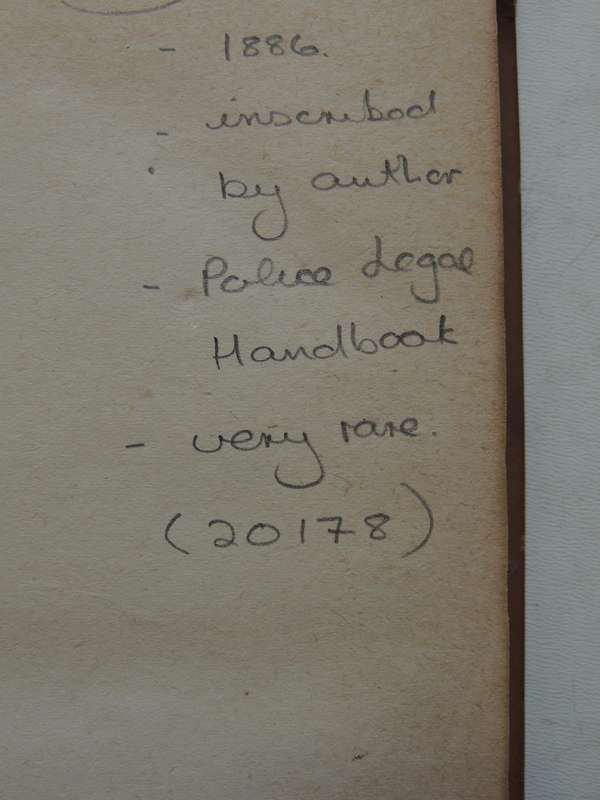 - 1886.
- inscribed
by author
- Police Legal
Handbook
- very rare.
(20178)